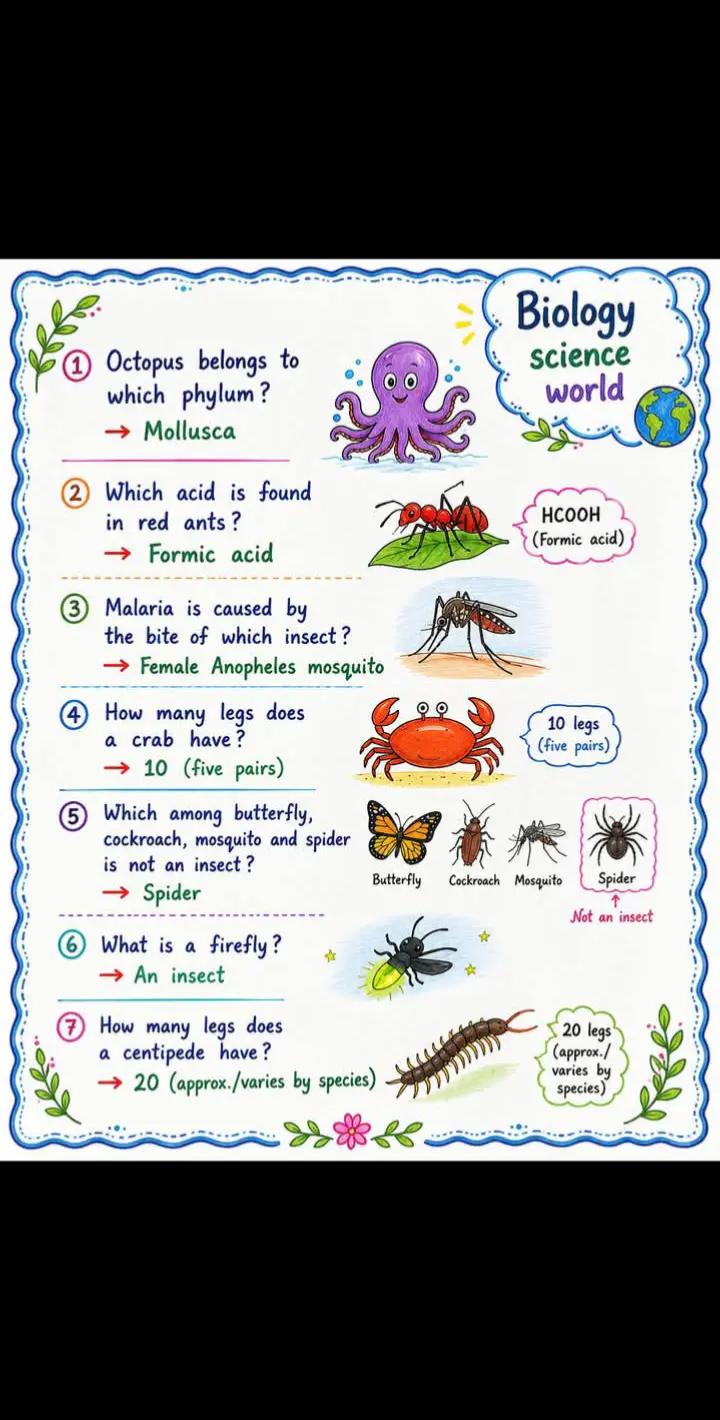 Biology
science
world
1 Octopus belongs to
which phylum?
→ Mollusca
2 Which acid is found
in red ants?
→ Formic acid
HCOOH
(Formic acid)
3 Malaria is caused by
the bite of which insect?
→ Female Anopheles mosquito
4 How many legs does
a crab have?
→ 10 (five pairs)
10 legs
(five pairs)
5 Which among butterfly,
cockroach, mosquito and spider
is not an insect?
→ Spider
Butterfly Cockroach Mosquito Spider
↑
Not an insect
6 What is a firefly?
→ An insect
7 How many legs does
a centipede have?
→ 20 (approx./varies by species)
20 legs
(approx./
varies by
species)